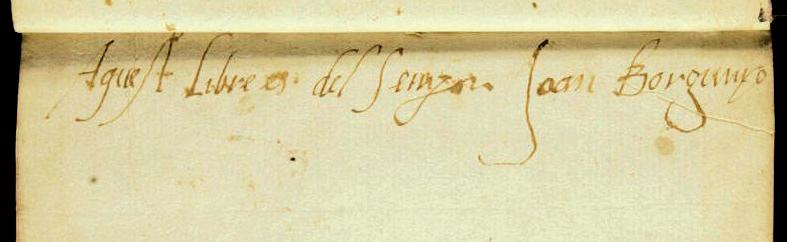 Aquest Libre es del Senyor Joan Borgunyo